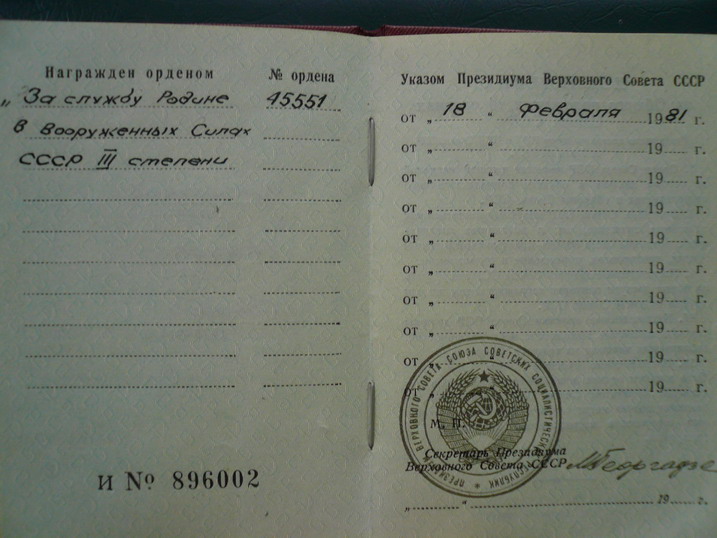 Награжден орденом
№ ордена
„ За службу Родине
45551
в Вооруженных Силах
СССР III степени
И № 896002
Указом Президиума Верховного Совета СССР
от „ 18 “ февраля 1981 г.
от „ “ 19 г.
от „ “ 19 г.
от „ “ 19 г.
от „ “ 19 г.
от „ “ 19 г.
от „ “ 19 г.
от „ “ 19 г.
от „ “ 19 г.
от „ “ 19 г.
М. П.
Секретарь Президиума
Верховного Совета СССР МГеоргадзе
„ “ 19 г.
ПРЕЗИДИУМ ВЕРХОВНОГО СОВЕТА СОЮЗА СОВЕТСКИХ СОЦИАЛИСТИЧЕСКИХ РЕСПУБЛИК